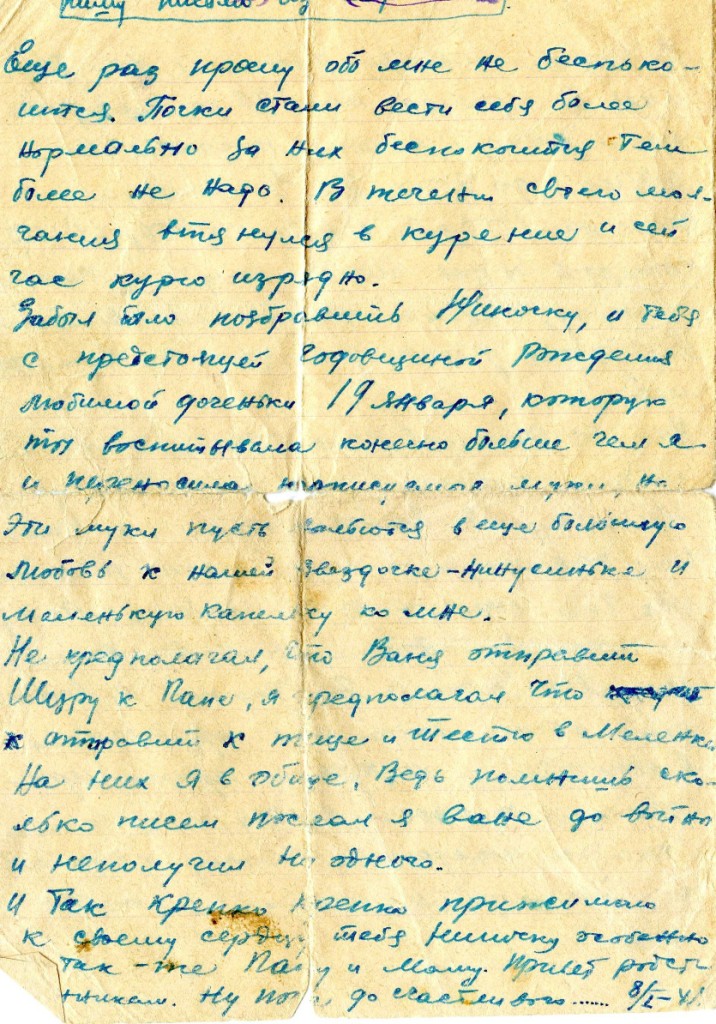 письмо из
Еще раз прошу обо мне не беспоко-
ится. Почки стали вести себя более
нормально за них беспокоится тем
более не надо. В течении своего мол-
чания втянулся в курение и сей
час курю изрядно.
Забыл было поздравить Ниночку, и тебя
с предстоящей годовщиной рождения
любимой доченьки 19 января, которую
ты воспитывала конечно больше чем я
и переносила муки, но
Эти муки пусть сольются в еще большую
любовь к нашей звездочке-Нинусиньке и
маленькую капельку ко мне.
Не предполагал, что Ваня отправит
Шуру к Папе, я предполагал что
отправит к теще и тестю в Меленки
На них я в обиде. Ведь помнишь ско-
лько писем послал я Ване до войны
и неполучил ни одного.
И так крепко крепко прижимаю
к своему сердцу тебя Ниночку особенно
так-же Папу и Маму. Привет родст
нникам. Ну пока до счастливого....... 8/I-